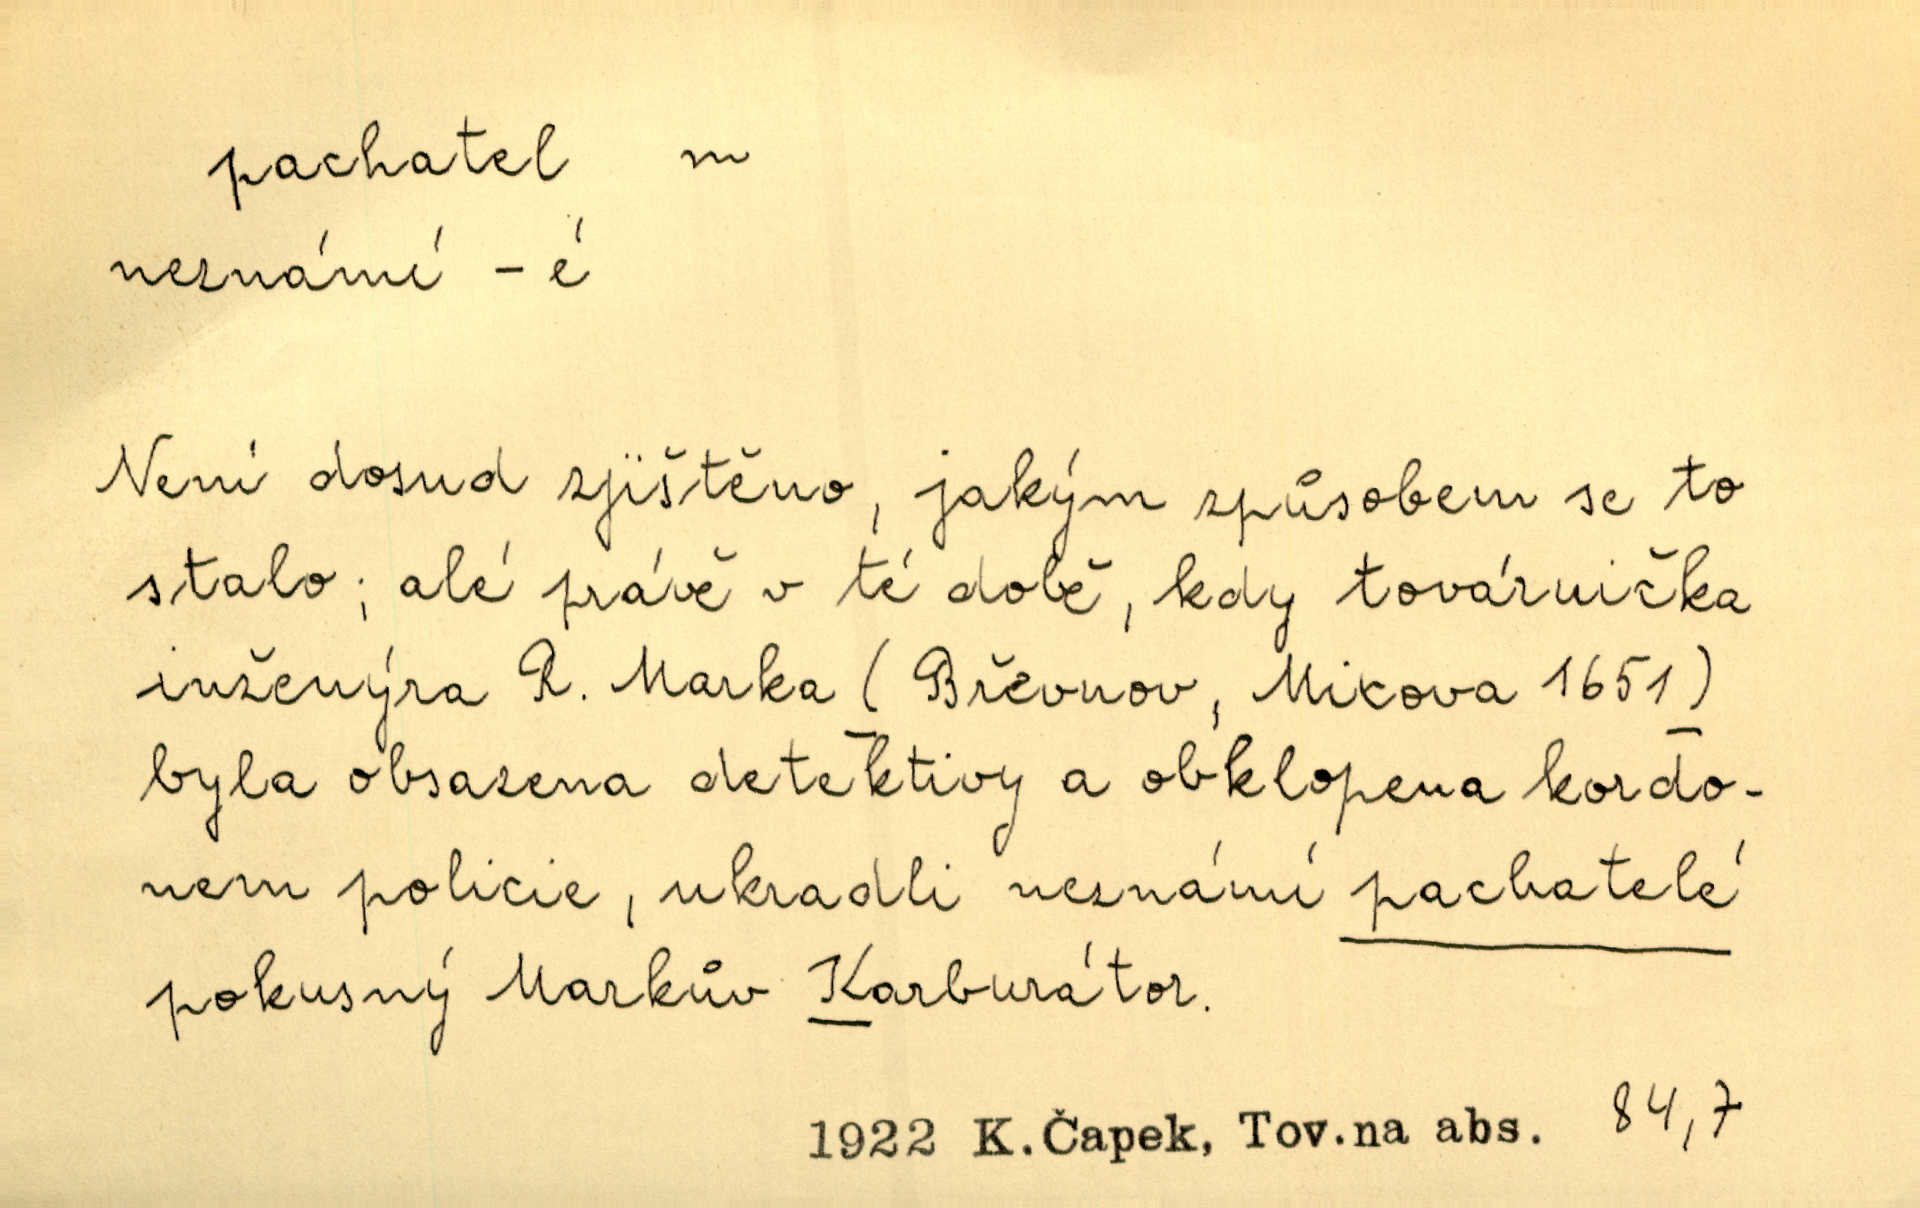 pachatel m
neznámí – é
Není dosud zjištěno, jakým způsobem se to
stalo; alé právě v té době, kdy továrnička
inženýra R. Marka (Břevnov, Mixova 1651)
byla obsazena detektivy a obklopena kordo-
nem policie, ukradli neznámí pachatelé
pokusný Markův Karburátor.
1922 K.Čapek, Tov.na abs. 84,7